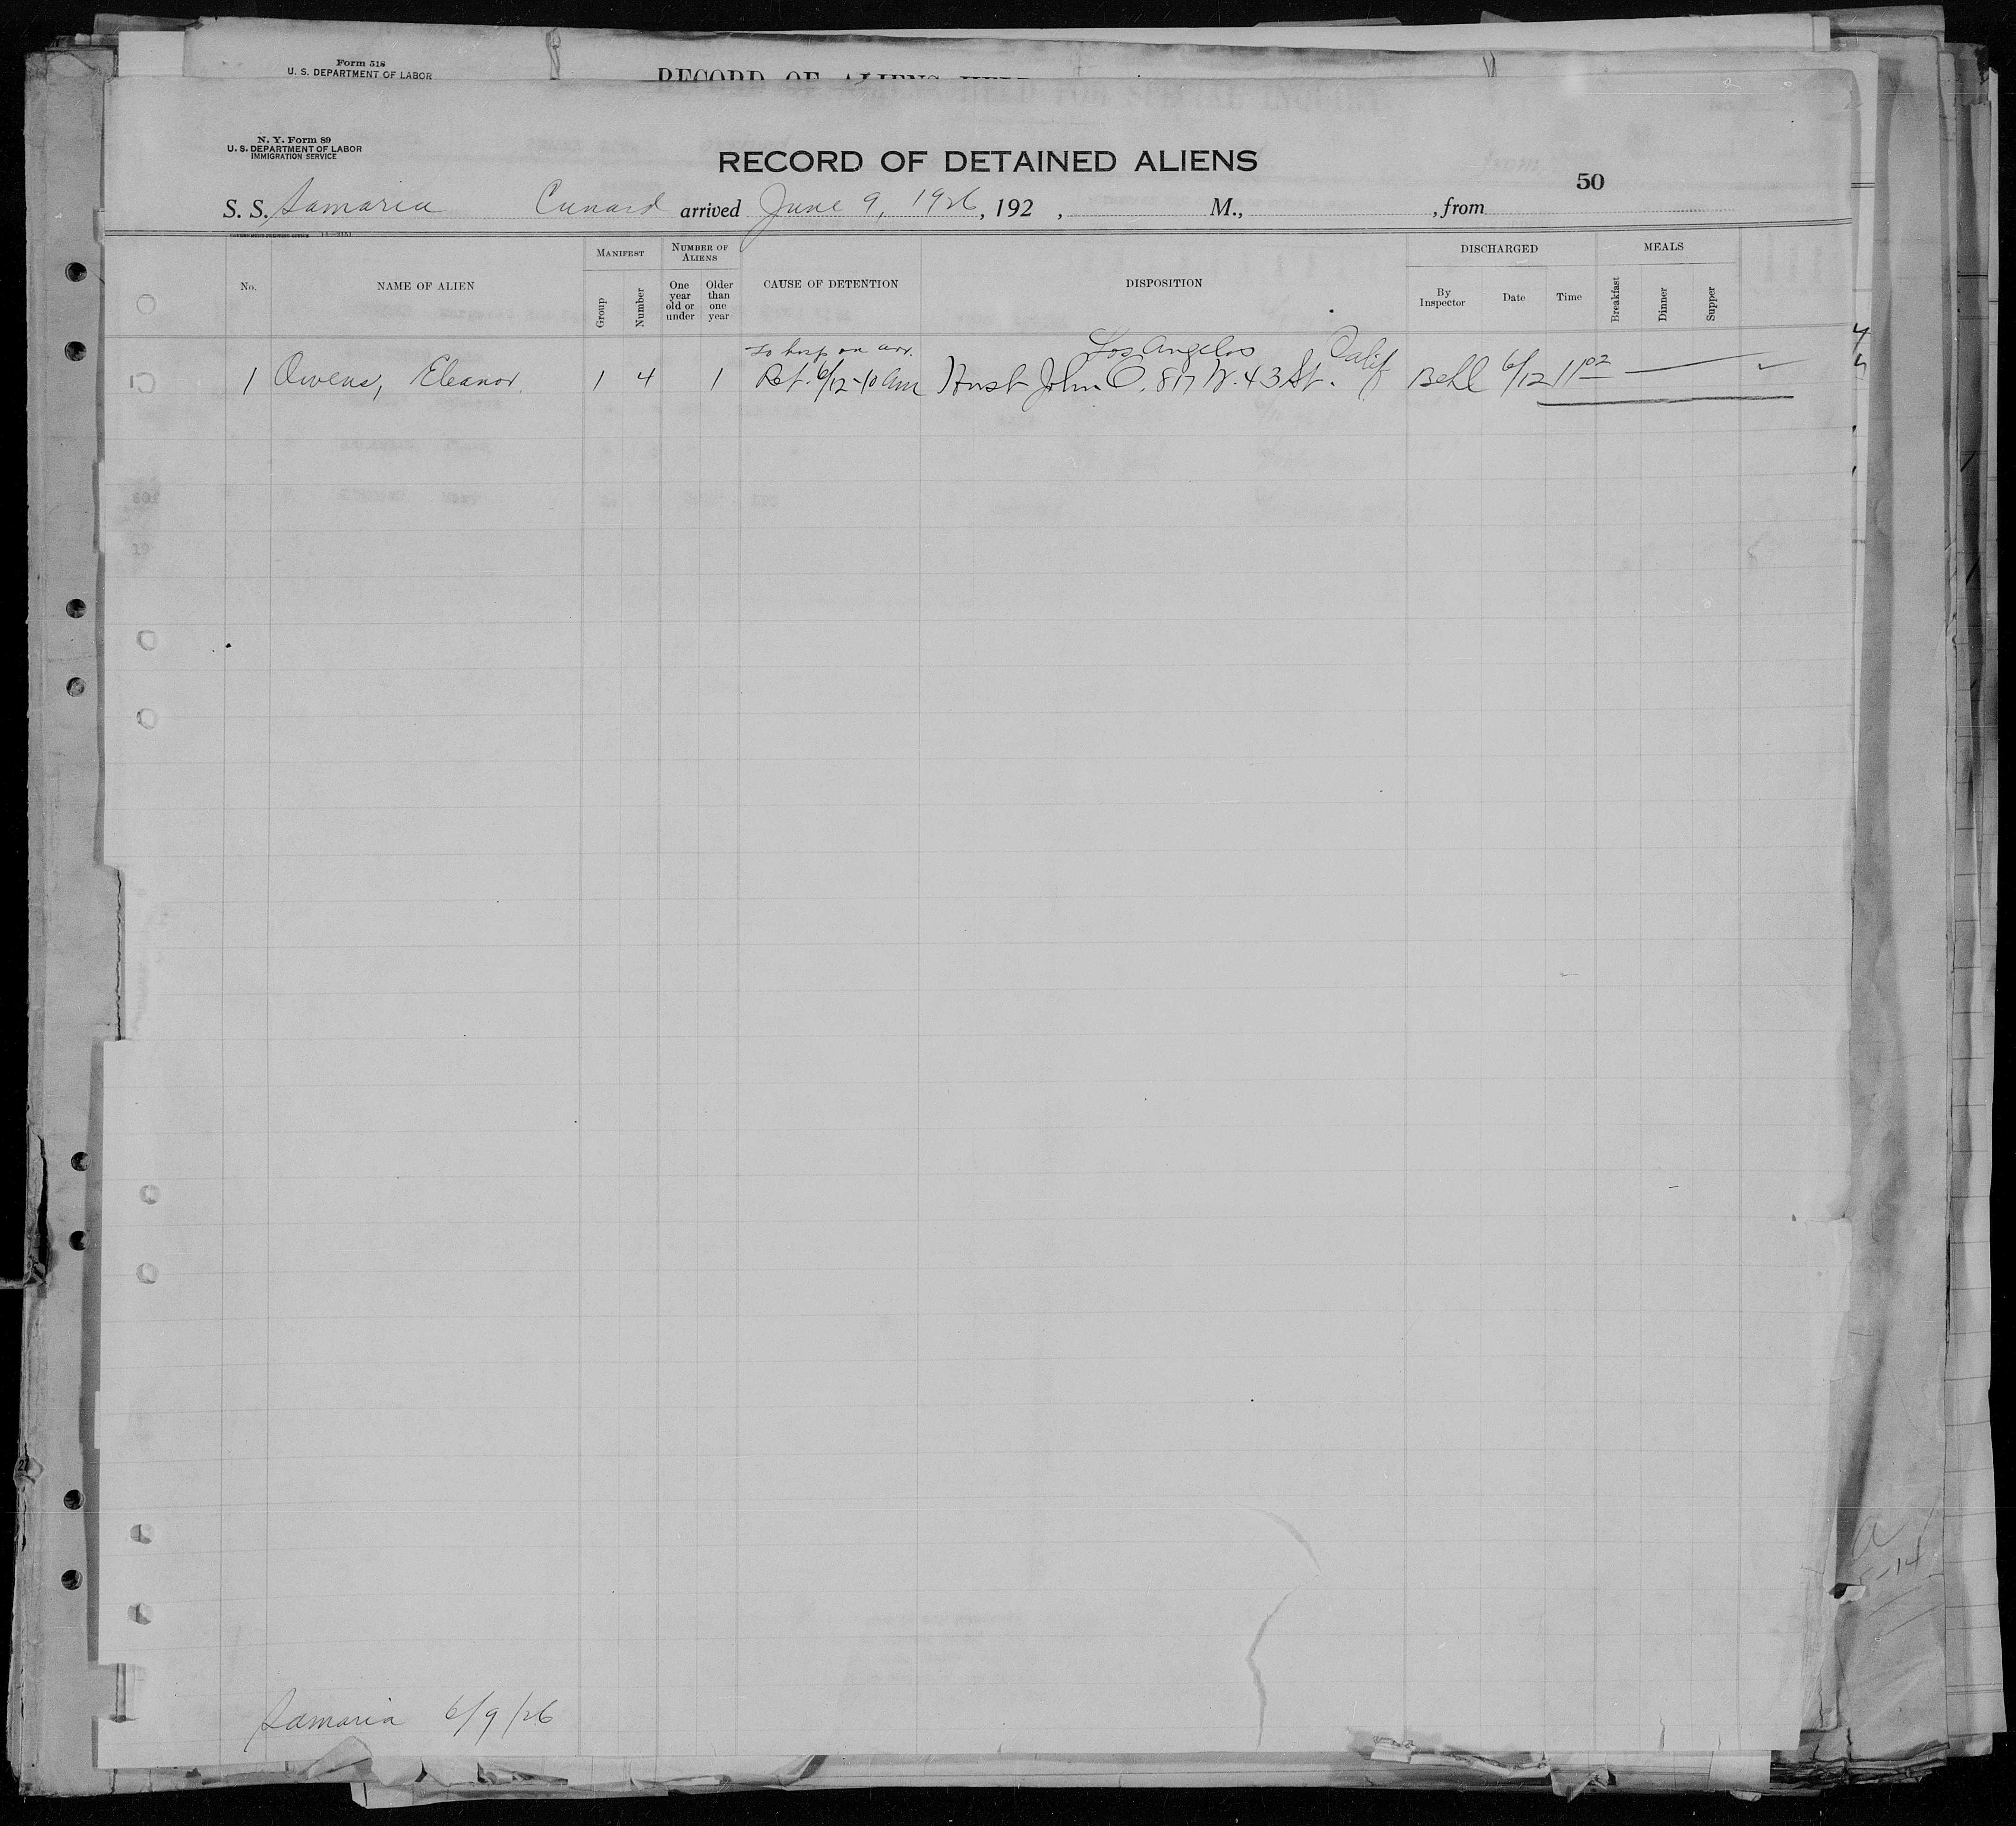 Form 518
U. S. DEPARTMENT OF LABOR
RECORD OF ALIENS HELD
N. Y. Form 89
U. S. DEPARTMENT OF LABOR
IMMIGRATION SERVICE
RECORD OF DETAINED ALIENS
50
S. S. Samaria Cunard arrived June 9, 1926, 192 , M., , from
No. NAME OF ALIEN MANIFEST Group Number NUMBER OF ALIENS One year old or under Older than one year CAUSE OF DETENTION DISPOSITION DISCHARGED By Inspector Date Time MEALS Breakfast Dinner Supper
To hosp on arr. Los Angelos Calif
1 Owens, Eleanor 1 4 1 Ret. 6/12-10 am Husb John O. 817 W. 43 St. Behl 6/12 11 02
Samaria 6/9/26